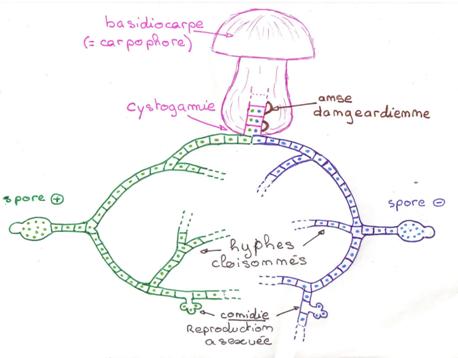 basidiocarpe
(= carpophore)
cystogamie
anse
dangeardienne
spore +
spore -
hyphes
cloisonnés
conidie
Reproduction
asexuée